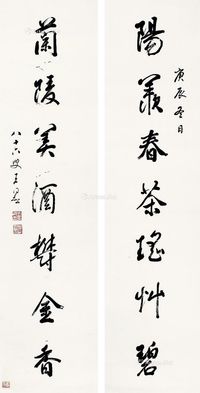 庚辰冬日
陽羨春茶瑤艸碧
蘭陵美酒鬱金香
八十六叟王